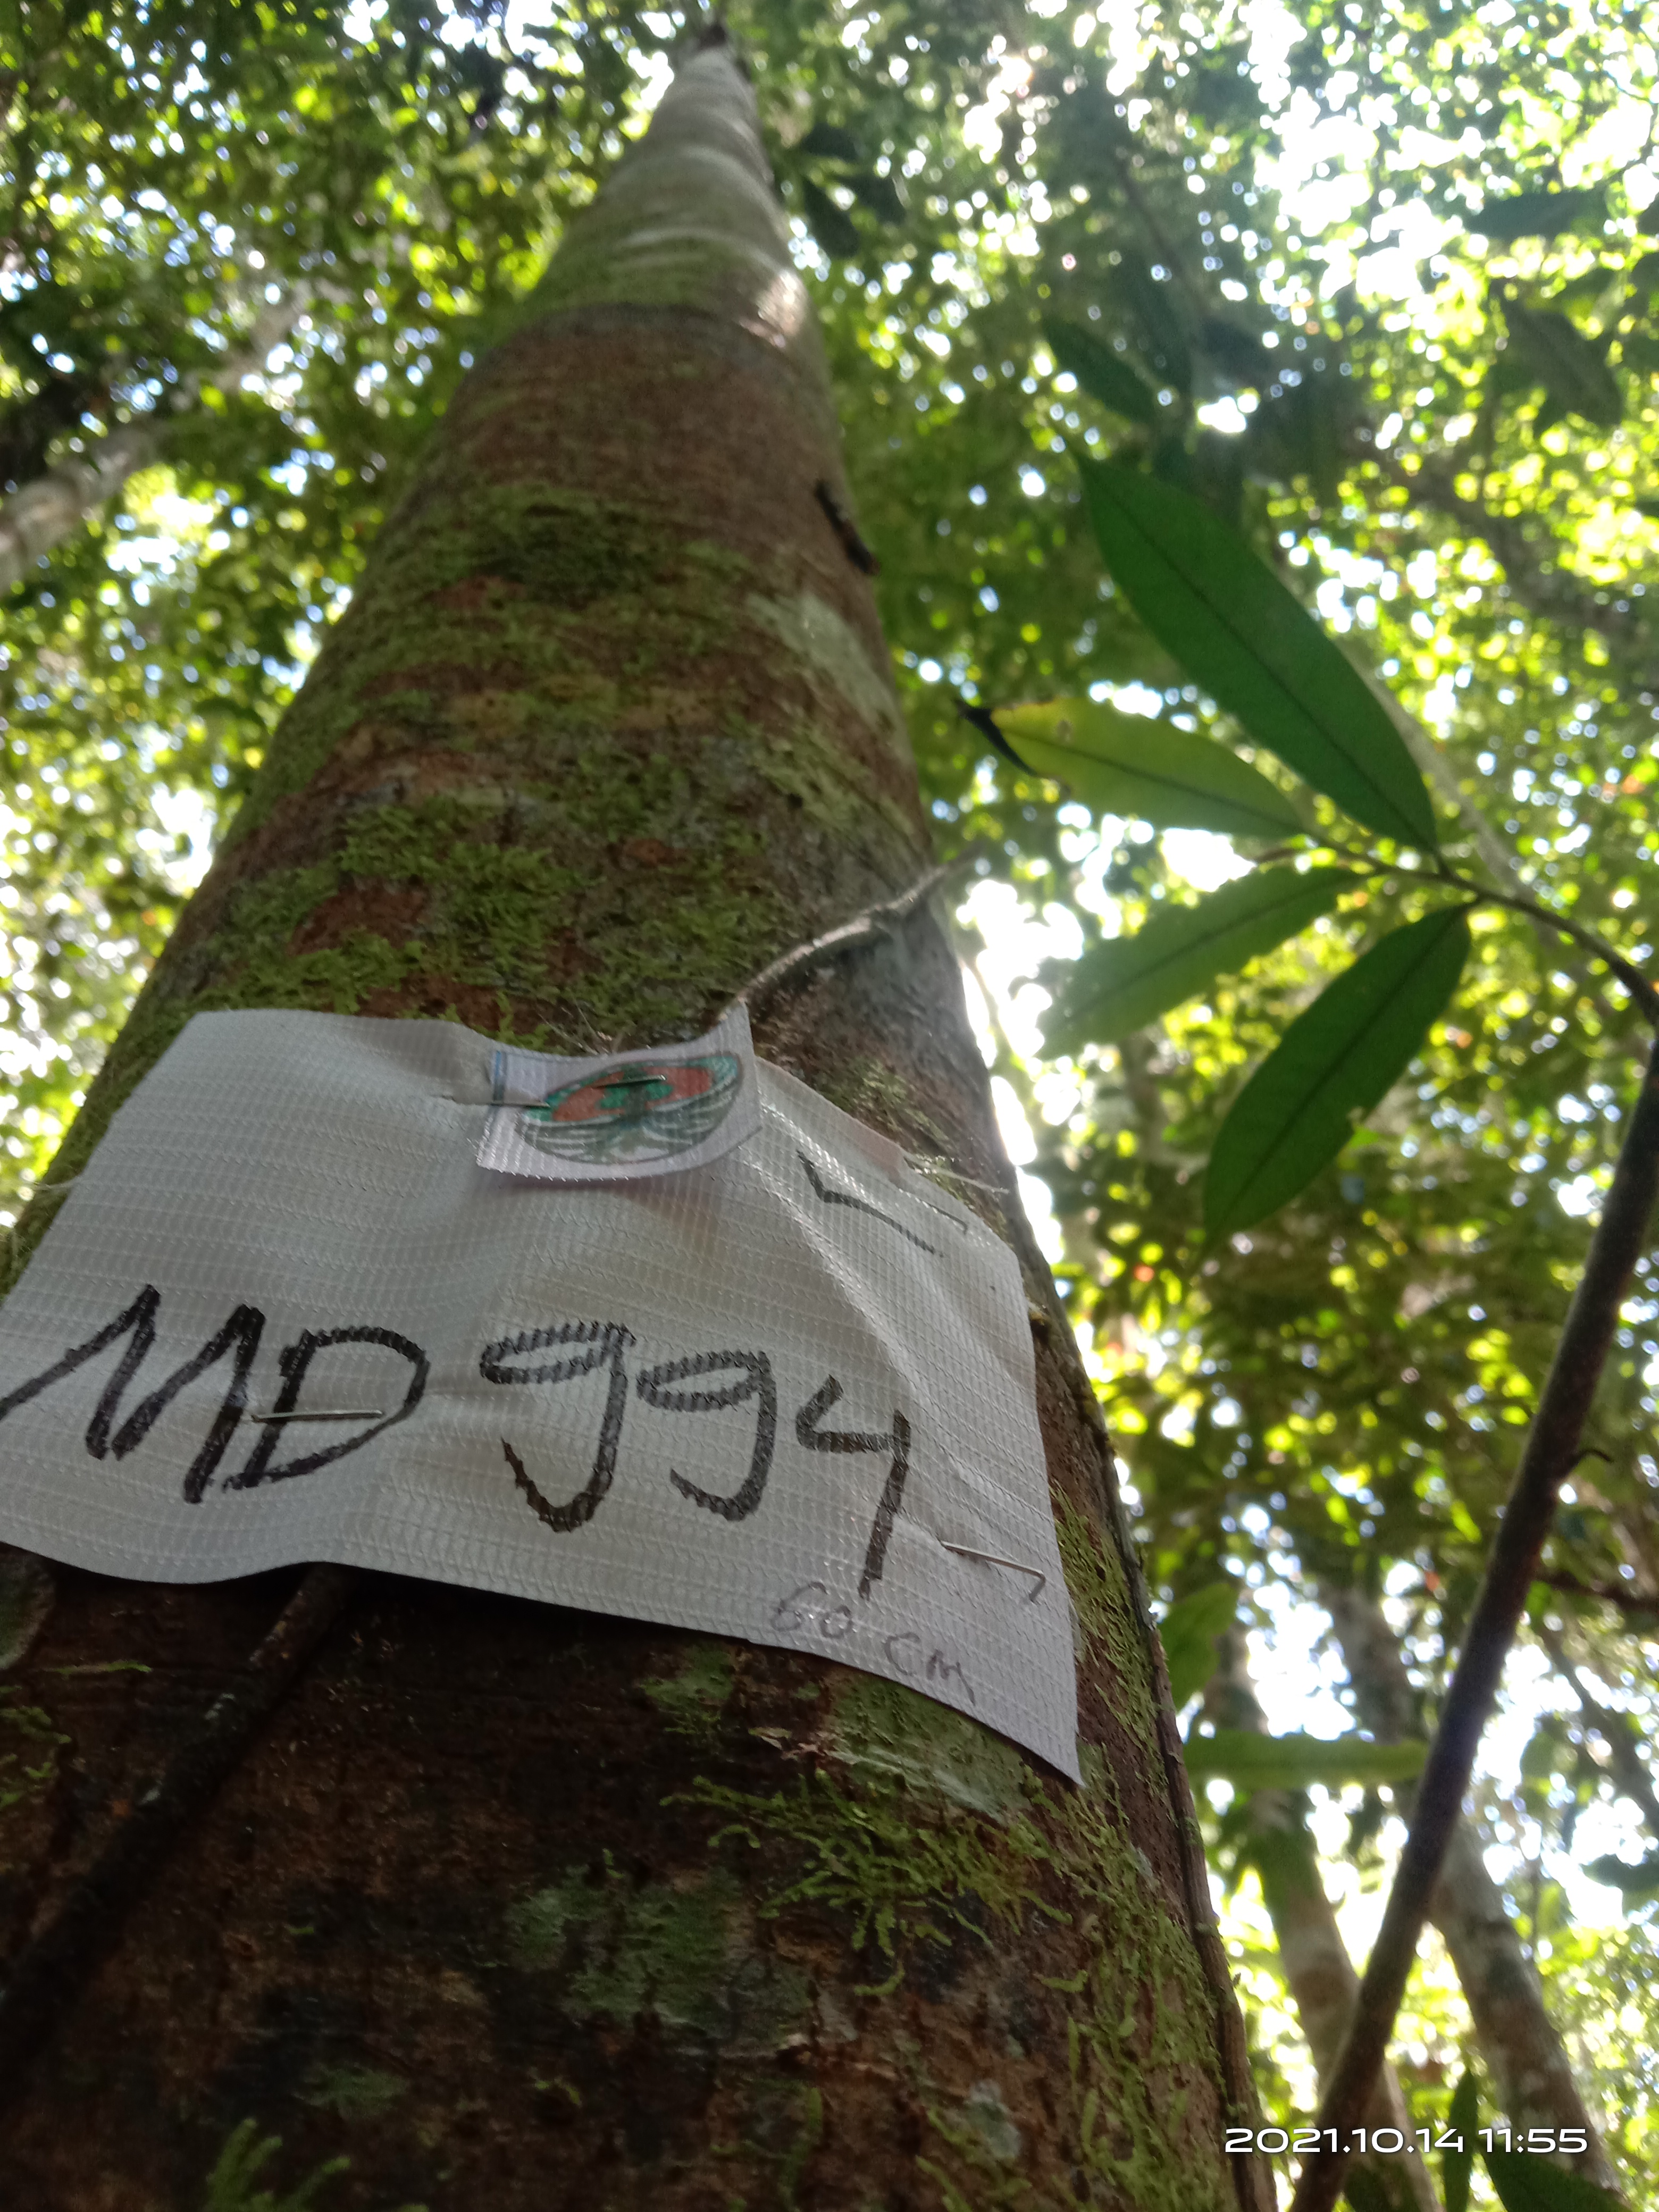 MD 994
60 cm
2021.10.14 11:55